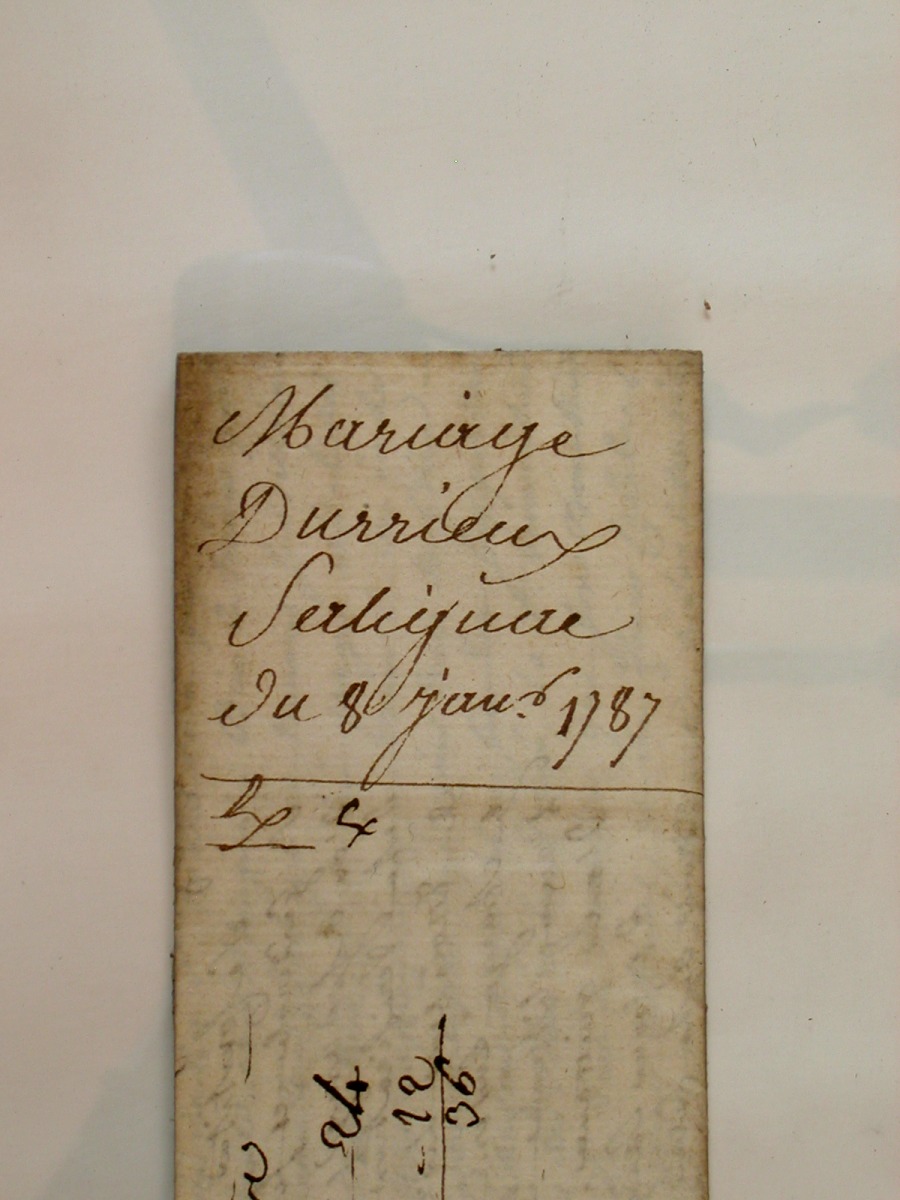 Mariage
Durrieux
Serhignac
du 8 janv.r 1787
24
12
36